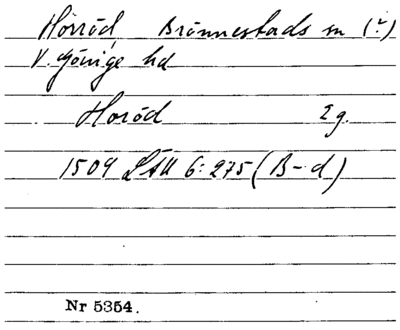 Hörröd Brönnestads sn (?)
V. Göinge hd
Horöd 2 g.
1509 LÄU 6:275 (B-d)
Nr 5354.